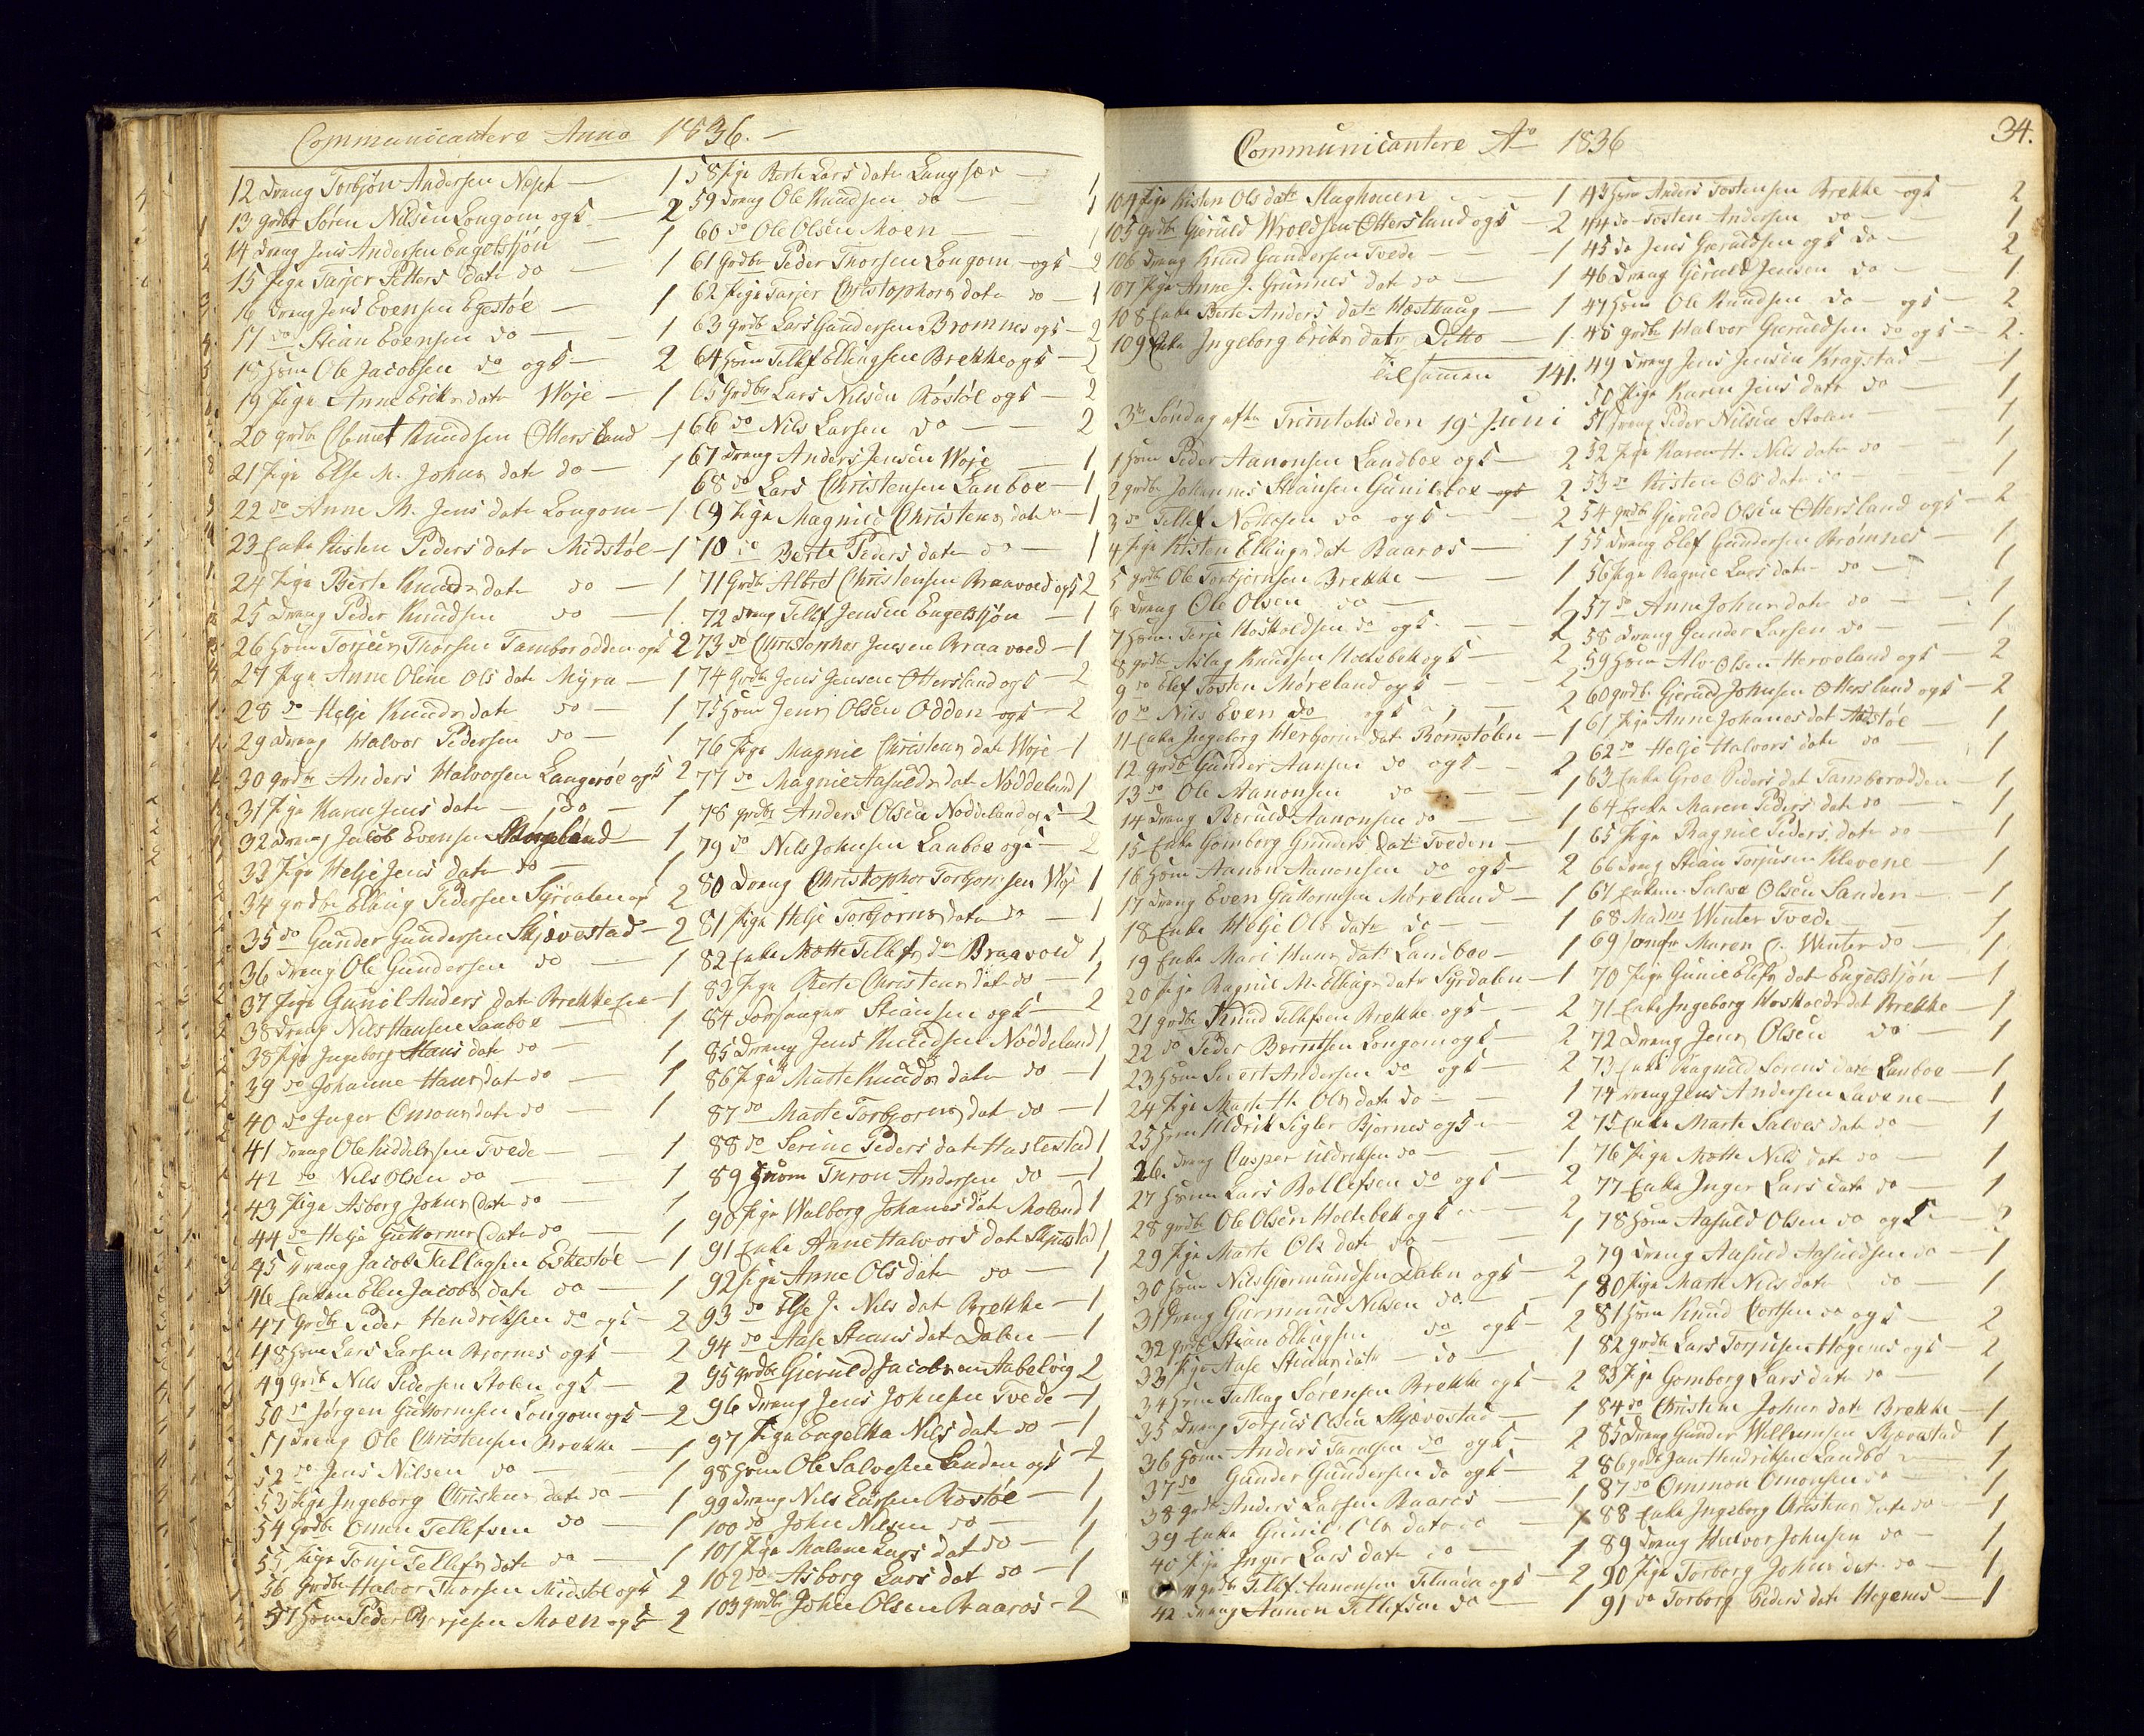 Communicantere Anno 1836.
12 Dreng Torbjøn Andersen Nesh — 1
13 grdbr Søren Nilsen Longom ogk — 2
14 Dreng Jens Andersen Engelstjøn — 1
15 Pige Tarjer Petters datr do — 1
16 Dreng Jens Evensen Egestøl — 1
17 do Stian Evensen do — 1
18 Hsm Ole Jacobsen do ogk — 2
19 Pige Anne Eriks datr Woje — 1
20 grdbr Clemet Knudsen Ottersland — 1
21 Pige Else M. Johns datr do — 1
22 do Anne M. Jens datr Longom — 1
23 Enke Kisten Peders datr Midstøl — 1
24 Pige Berte Knuds datr do — 1
25 Dreng Peder Knudsen do — 1.
26 Hsm Torjus Thorsen Tamborodden ogk 2
27 Pige Anne Oline Ols datr Myra — 1
28 do Helje Knuds datr do — 1
29 Dreng Halvor Pedersen do — 1
30 grdbr Anders Halvorsen Langerøe ogk 2
31 Pige Karen Jens datr — do — 1
32 Dreng Jacob Evensen — 1
33 Pige Helje Jens datr do — 1
34 grdbr Elling Pedersen Syrdalen og 2
35 do Gunder Gundersen Skjævestad — 2
36 Dreng Ole Gundersen do — 1
37 Pige Gunil Anders datr Brekke — 1
38 Dreng Nils Hansen Lanboe — 1
38 Pige Ingeborg Hans datr do — 1
39 do Johanne Hans datr do — 1
40 do Inger Omons datr do — 1
41 Dreng Ole Kiddelsen Tvede — 1
42 do Nils Olsen do — 1
43 Pige Asborg Johns datr do — 1
44 do Helje Guttorms datr do — 1
45 Dreng Jacob Tallagsen Eskestøl — 1
46 Enken Elen Jacobs datr do — 1
47 Grdbr Peder Hendriksen do ogk — 2
48 Hsm Lars Larsen Bjornes ogk — 2
49 Grdb Nils Pedersen Stolen ogk — 2
50 do Jørgen Guttormsen Longom ogk — 2
51 Dreng Ole Christensen Brekke — 1
52 do Jens Nilsen do — 1
53 Pige Ingeborg Christens datr do — 1
54 Grdbr Omon Tellefsen do — 1
55 Pige Tonje Tellefs datr do — 1
56 Grdbr Halvor Thorsen Midstøl ogk 2
57 Hsm Peder Moen ogk — 2
58 Pige Berte Lars datr Langsæv — 1
59 Dreng Ole Knudsen do — 1
60 do Ole Olsen Moen —
61 Grdbr Peder Thorsen Longom — ogk — 2
62 Pige Tarjer Christophers datr do — 1
63 grdb Lars Gundersen Bromnes ogk — 2
64 Hsm Tellef Ellingsen Brekke ogk — 2
65 Grdbr Lars Nilsen Røstøl ogk — 2
66 do Nils Larsen do — 2
67 Dreng Anders Jensen Woje — 1
68 do Lars Christensen Lanboe — 1
69 Pige Magnild Christens datr do — 1
70 do Berte Peders datr do — 1
71 Grdbr Albret Christensen Braavold ogk 2
72 Dreng Tellef Jensen Engelstjøn — 1
73 do Christopher Jensen Braavold — 1
74 Grdbr Jens Jensen Ottersland ogk — 2
75 Hsm Jens Olsen Odden ogk — 2
76 Pige Magnil Christens datr Woje — 1
77 do Magnil Aasulds dat Noddeland 1
78 grdbr Anders Olsen Noddeland ogk — 2
79 do Nils Johnsen Lanboe ogk — 2
80 Dreng Christopher Torbjornsen Woje 1
81 Pige Helje Torbjorns datr do — 1
82 Enke Mætte Tellefs dr Braavold 1
83 Pige Berte Christens datr do — 1
84 Forsanger Stiansen ogk — 2
85 Dreng Jens Knudsen Noddeland 1
86 Pige Marte Knuds datr do — 1
87 do Marte Torbjorns dat do — 1
88 do Serine Peders datr Haslestad 1
89 Hsm Thron Andersen do — 1
90 Pige Walborg Johanes dat Moland 1
91 Enke Anne Halvors dat Skjævestad 1
92 Pige Anne Ols datr do — 1
93 do Else J. Nils dat Brekke — 1
94 do Aase Stians dat Dalen — 1
95 grdbr Gieruld Jacobsen Aabelvig 2
96 Dreng Jens Johnsen Tvede — 1
97 Pige Engelka Nils datr do — 1
98 Hsm Ole Salvesen Sanden ogk — 2
99 Dreng Nils Larsen Røstøl — 1
100 do John Nilsen do — 1
101 Pige Malene Lars dat do — 1
102 do Asborg Lars dat do — 1
103 grdbr John Olsen Baaros — 2
Communicantere Ao 1836
34.
104 Pige Kisten Ols datr — 1
105 grdbr Gieruld Wroldsen Ottersland ogk — 2
106 Dreng Knud Gundersen Tvede — 1
107 Pige Anne J. Grunnes datr do — 1
108 Enke Berte Anders datr Hæsthaug — 1
109 Enke Ingeborg Eriks datr Ditto — 1
Tilsamen 141.
3de Søndag efter Trinitatis den 19de Juni
1 Hsm Peder Aanonsen Landboe ogk — 2
2 grdbr Johannes Stiansen Gunilsboe ogk 2
3 do Tellef do ogk — 2
4 Pige Kisten Ellings datr Baaros — 1
5 grdb Ole Torbjørnsen Brekke — 1
6 Dreng Ole Olsen do — 1
7 Hsm Terje Hoskoldsen do ogk — 2
8 grdbr Aslag Knudsen Holtebek ogk — 2
9 do Elef Tosten Møreland ogk — 2
10 do Nils Even do ogk — 2
11 Enke Ingeborg Herbjorns datr Romstølen — 1
12 grdb Gunder Aansen do ogk — 2
13 do Ole Aanonsen do — 1
14 Dreng Bæruld Aanonsen do — 1
15 Enke Gomborg Gunders datr Tveden — 1
16 Hsm Aanon Aanonsen do ogk — 2
17 Dreng Even Guttormsen Møreland — 1
18 Enke Helje Ols datr do — 1
19 Enke Mari Hans datr Landboe — 1
20 Pige Ragnil M. Ellings datr Syrdalen — 1
21 grdbr Knud Tellefsen Brekke ogk — 2
22 do Peder Berntsen Longom ogk — 2
23 Hsm Sivert Andersen do ogk — 2
24 Pige Marte M. Ols datr do — 1
25 Hsm Uldrik Sigler Bjornes ogk — 2
26. Dreng Casper Uldriksen do — 1
27 Hsm Lars Rollefsen do ogk — 2
28 grdbr Ole Olsen Holtebek ogk — 2
29 Pige Marte Ols datr do — 1
30 Hsm Nils Giermundsen Dalen ogk — 2
31 Dreng Giermund Nilsen do — 1
32 grdb Stian Ellingsen do ogk — 2
33 Pige Aase Stians datr — do — 1
34 Hsm Tallag Sørensen Brekke ogk — 2
35 Dreng Torjus Olsen Skjævestad — 1
36 Hsm Anders Taralsen do ogk — 2
37 do Gunder Gundersen do ogk — 2
38 grdb Anders Larsen Baaros — 1
39 Enke Gunil Ols datr do — 1
40 Pige Inger Lars datr do — 1
41 grdb Tellef Aanonsen ogk — 2
42 Dreng Aanon Tellefsen do — 1
43 Hsm Anders Tostensen Brekke — ogk — 2
44 do Tosten Andersen do — 1
45 do Jens Gieruldsen ogk do — 2
46 Dreng Gieruld Jensen do — 1
47 Hsm Ole Knudsen do — ogk — 2
48 grdbr Halvor Gieruldsen do ogk — 2.
49 Dreng Jens Jensen Kragstad — 1
50 Pige Karen Jens datr do — 1
51 Dreng Peder Nilsen Stolen — 1
52 Pige Karen H. Nils datr do — 1
53 do Kisten Ols datr do — 1
54 grdb Gieruld Olsen Ottersland ogk — 2
55 Dreng Elef Gundersen Brømnes — 1
56 Pige Ragnil Lars datr do — 1
57 do Anne Johns datr do — 1
58 Dreng Gunder Larsen do — 1
59 Hsm Alv Olsen Herveland ogk — 2
60 grdb. Gieruld Johnsen Ottersland ogk — 2
61 Pige Anne Johanes dat Midstøl — 1
62 do Helje Halvors datr do — 1
63 Enke Groe Peders dat Tamborodden — 1
64 Enke Maren Peders datr do — 1
65 Pige Ragnil Peders datr do — 1
66 Dreng Stian Torjusen Klevene 1
67 Enkem. Salve Olsen Sanden — 1
68 Madm Winter Tvede — 1
69 Jomfr Maren C. Winter do — 1
70 Pige Gunil Elefs dat Engelstjøn — 1
71 Enke Ingeborg Hoskolds dat Brekke — 1
72 Dreng Jens Olsen do — 1
73 Enke Ragnild Sorens datr Lanboe — 1
74 Dreng Jens Andersen Lavene — 1
75 Enke Marte Salves datr do — 1
76 Pige Mætte Nils datr do — 1
77 Enke Inger Lars datr do — 1
78 Hsm Aasuld Olsen do ogk — 2
79 Dreng Aasuld Aasuldsen do — 1
80 Pige Marte Nils datr do — 1
81 Hsm Knud do ogk — 2
82 grdbr Lars Torjusen Hogenes ogk — 2
83 Pige Gomborg Lars datr do — 1
84 do Christine Johns datr Brekke — 1
85 Dreng Gunder Willumsen Skjævestad 1
86 grdb Jan Hendriksen Landbo — 1
87 do Ommon Omonsen do — 1
88 Enke Ingeborg Christens datr do — 1
89 Dreng Halvor Johnsen do — 1
90 Pige Torborg Johns datr do — 1
91 do Torborg Peders datr Hegenes — 1